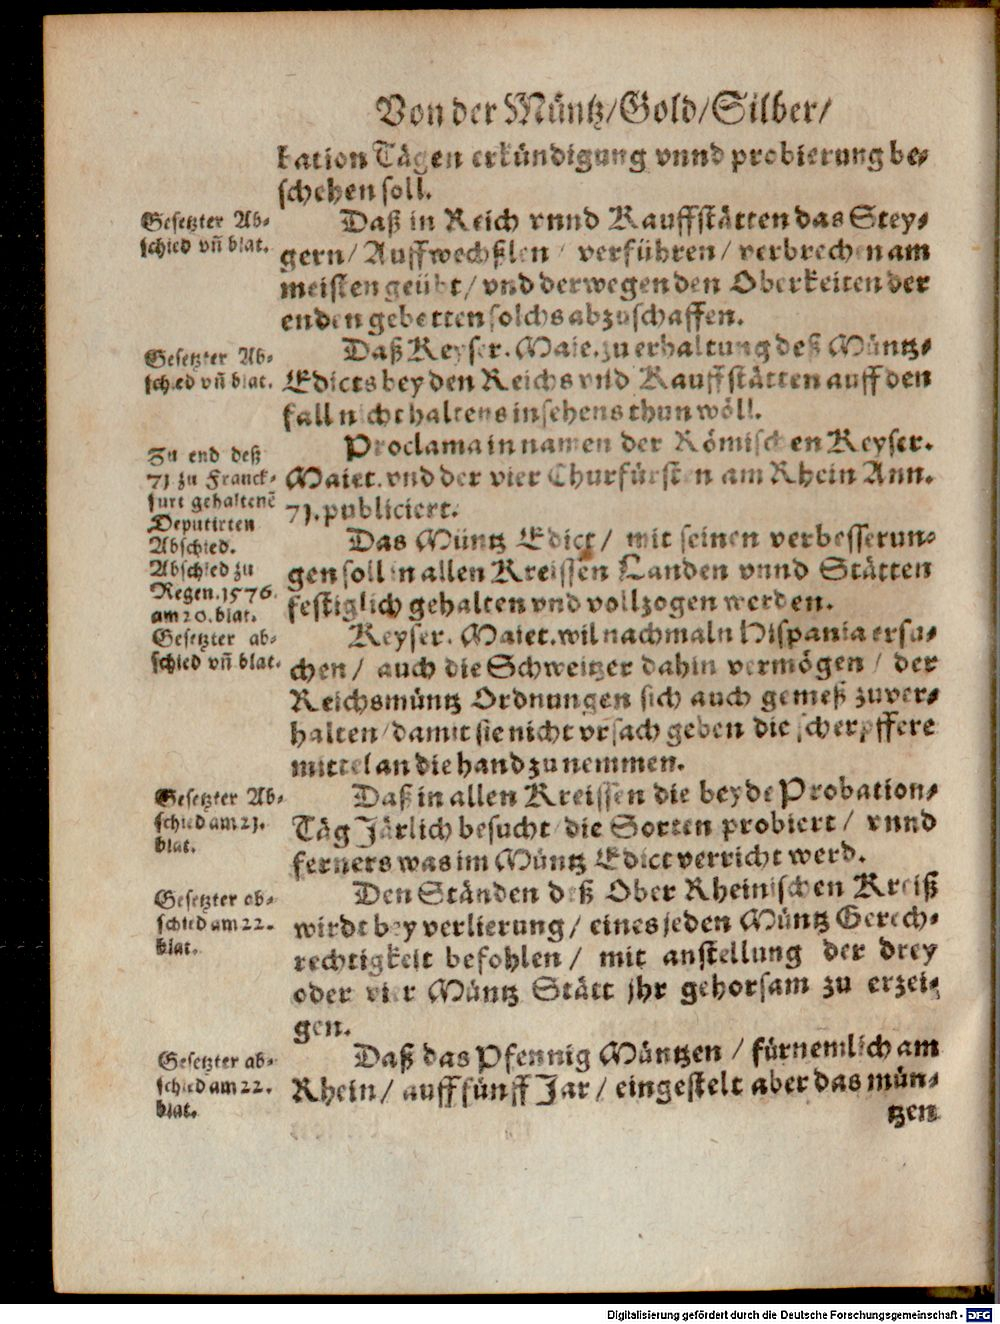 Von der Müntz/Gold/Silber/
kation Tägen erkündigung vnnd probierung be-
schehen soll.
Gesetzter Ab-
schied vñ blat.
Daß in Reich vnnd Kauffstätten das Stey-
gern/ Auffwechßlen / verführen/ verbrechen am
meisten geübt/ vnd derwegen den Oberkeiten der
enden gebetten solchs abzuschaffen.
Gesetzter Ab-
schied vñ blat.
Daß Keyser. Maie. zu erhaltung deß Müntz-
Edicts bey den Reichs vnd Kauffstätten auff den
fall nicht haltens insehens thun wöll.
Zu end deß
71 zu Franck-
furt gehaltenē
Deputirten
Abschied.
Proclama in namen der Römischen Keyser.
Maiet. vnd der vier Churfürsten am Rhein Ann.
71. publiciert.
Abschied zu
Regen. 1576.
am 20. blat.
Das Müntz Edict/ mit seinen verbesserun-
gen soll in allen Kreissen Landen vnnd Stätten
festiglich gehalten vnd vollzogen werden.
Gesetzter ab-
schied vñ blat.
Keyser. Maiet. wil nachmaln Hispania ersu-
chen/ auch die Schweitzer dahin vermögen / der
Reichsmüntz Ordnungen sich auch gemeß zuver-
halten/ damit sie nicht vrsach geben die scherpffere
mittel an die hand zu nemmen.
Gesetzter Ab-
schied am 21.
blat.
Daß in allen Kreissen die beyde Probation-
Täg Järlich besucht die Sorten probiert/ vnnd
ferners was im Müntz Edict verricht werd.
Gesetzter ab-
schied am 22.
blat.
Den Ständen deß Ober Rheinischen Kreiß
wirdt bey verlierung/ eines jeden Müntz Gerech-
rechtigkeit befohlen/ mit anstellung der drey
oder vier Müntz Stätt jhr gehorsam zu erzei-
gen.
Gesetzter ab-
schied am 22.
blat.
Daß das Pfennig Müntzen / fürnemlich am
Rhein/ auff fünff Jar/ eingestelt aber das mün-
tzen
Digitalisierung gefördert durch die Deutsche Forschungsgemeinschaft - DFG